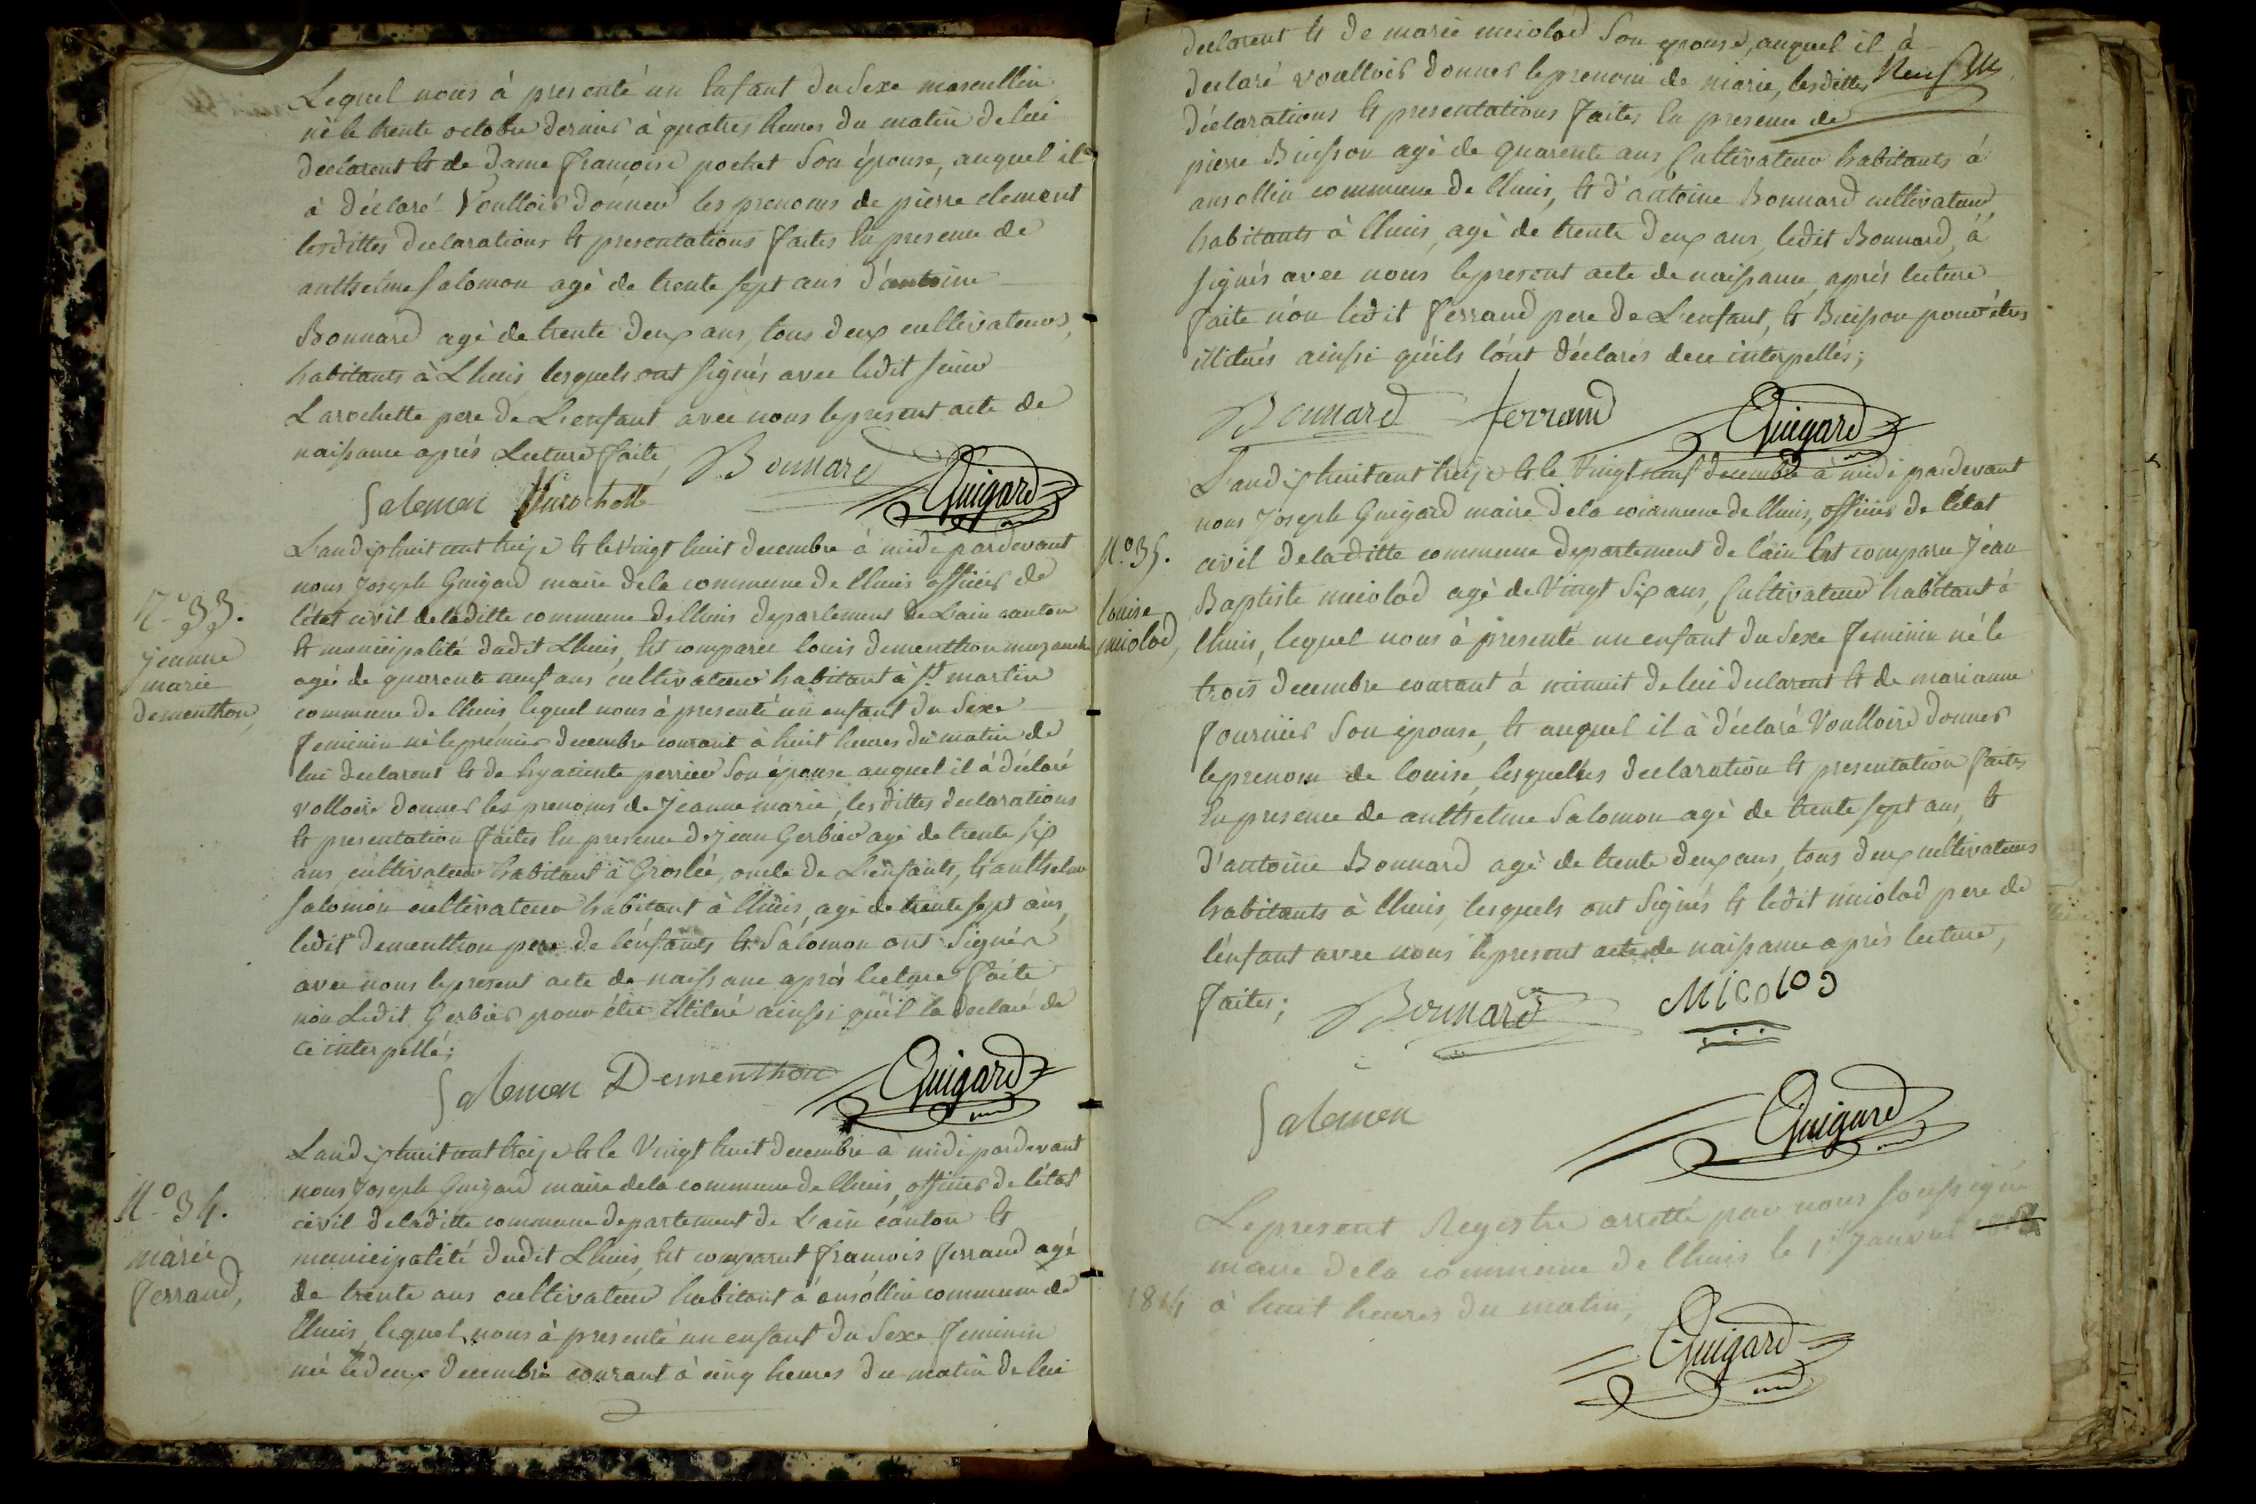 Lequel nous à presenté un Enfant du Sexe masculin
né le trente octobre dernier à quatres heures du matin de lui
declarent et de dame françoise pochet Son épouse, auquel il
à déclaré Voulloir donner les prenoms de pierre clement
lesdittes declarations et presentations faites En presence de
anthelme Salomon agé de trente sept ans d'antoine
Bonnard agé de trente deux ans, tous deux cultivateurs,
habitants à Lhuis lesquels ont signés avec ledit sieur
Larochette pere de L'enfant avec nous le present acte de
naissance aprés Lecture faite,
Bonnard
Salomon Larochette Guigard
L'an dix huit cent treize et le Vingt huit decembre à midi pardevant
nous Joseph Guigard maire de la commune de lhuis officier de
l'état civil de laditte commune de lhuis departement de L'ain canton
et municipalité dudit Lhuis, Est comparu louis dementhon
agé de quarente neuf ans cultivateur habitant à St martin
commune de lhuis, lequel nous à presenté un enfant du Sexe
feminin né le premier decembre courant à huit heures du matin de
lui declarent et de hyacinte perrier Son épouse auquel il à déclaré
volloir donner les prenoms de jeanne marie, les dittes declarations
et presentation faites En presence de jean Gerbier agé de trente six
ans, cultivateur habitant à Groslée, oncle de L'enfants, et anthelme
Salomon cultivateur habitant à lhuis, agé de trente sept ans,
ledit dementhon pere de l'enfants et Salomon ont Signés
avec nous le present acte de naissance aprés lecture faite
non Ledit Gerbier pour étre illitéré ainsi qu'il la declaré de
ce interpellé;
Salomon Dementhon Guigard
N° 33.
jeanne
marie
dementhon,
L'an dix huit cent treize et le Vingt huit decembre à midi pardevant
nous Joseph Guigard maire de la commune de lhuis, officier de l'état
civil de laditte commune departement de L'ain canton et
municipalité dudit Lhuis, Est comparut francois ferrand agé
de trente ans cultivateur habitant à ansollin commune de
lhuis, lequel nous à presenté un enfant du Sexe feminin
né le deux decembre courant à cinq heures du matin de lui
N° 34.
marie
ferrand,
declarent et de marie miolad Son epouse, auquel il à
declaré voulloir donner le prenom de marie, lesdittes
Neuf
déclarations et presentations faites En presence de
pierre Buisson agé de quarente ans, Cultivateur habitants à
ansollin commune de lhuis, et d'antoine Bonnard cultivateur
habitants à lhuis, agé de trente deux ans, ledit Bonnard, à
signés avec nous le present acte de naissance, aprés lecture
faite non ledit ferrand pere de L'enfant, et Buisson pour étres
illitérés ainssi qu'ils l'ont déclarés de ce interpellés;
Bonnard ferrand Guigard
L'an dix huit cent treize et le Vingt neuf decembre à midi pardevant
nous Joseph Guigard maire de la commune de lhuis, officier de l'état
civil de laditte commune departement de l'ain Est comparu Jean
Baptiste miolad agé de Vingt Six ans, Cultivateur habitant à
lhuis, lequel nous à presenté un enfant du Sexe feminin né le
trois decembre courant à minuit de lui declarent et de marianne
fournier Son épouse, et auquel il à déclaré Voulloir donner
le prenom de louise, lesquelles declaration et presentation faites
En presence de anthelme Salomon agé de trente sept ans, et
d'antoine Bonnard agé de trente deux ans, tous deux cultivateurs
habitants à lhuis, lesquels ont Signés et ledit miolad pere de
l'enfant avec nous le present acte de naissance aprés lecture,
faites; Bonnard Micolod
N° 35.
louise
miolad,
Salomon
Guigard
Le present Registre arretté par nous soussigné
maire de la commune de lhuis le 1er Janvier
1814 à huit heures du matin,
Guigard